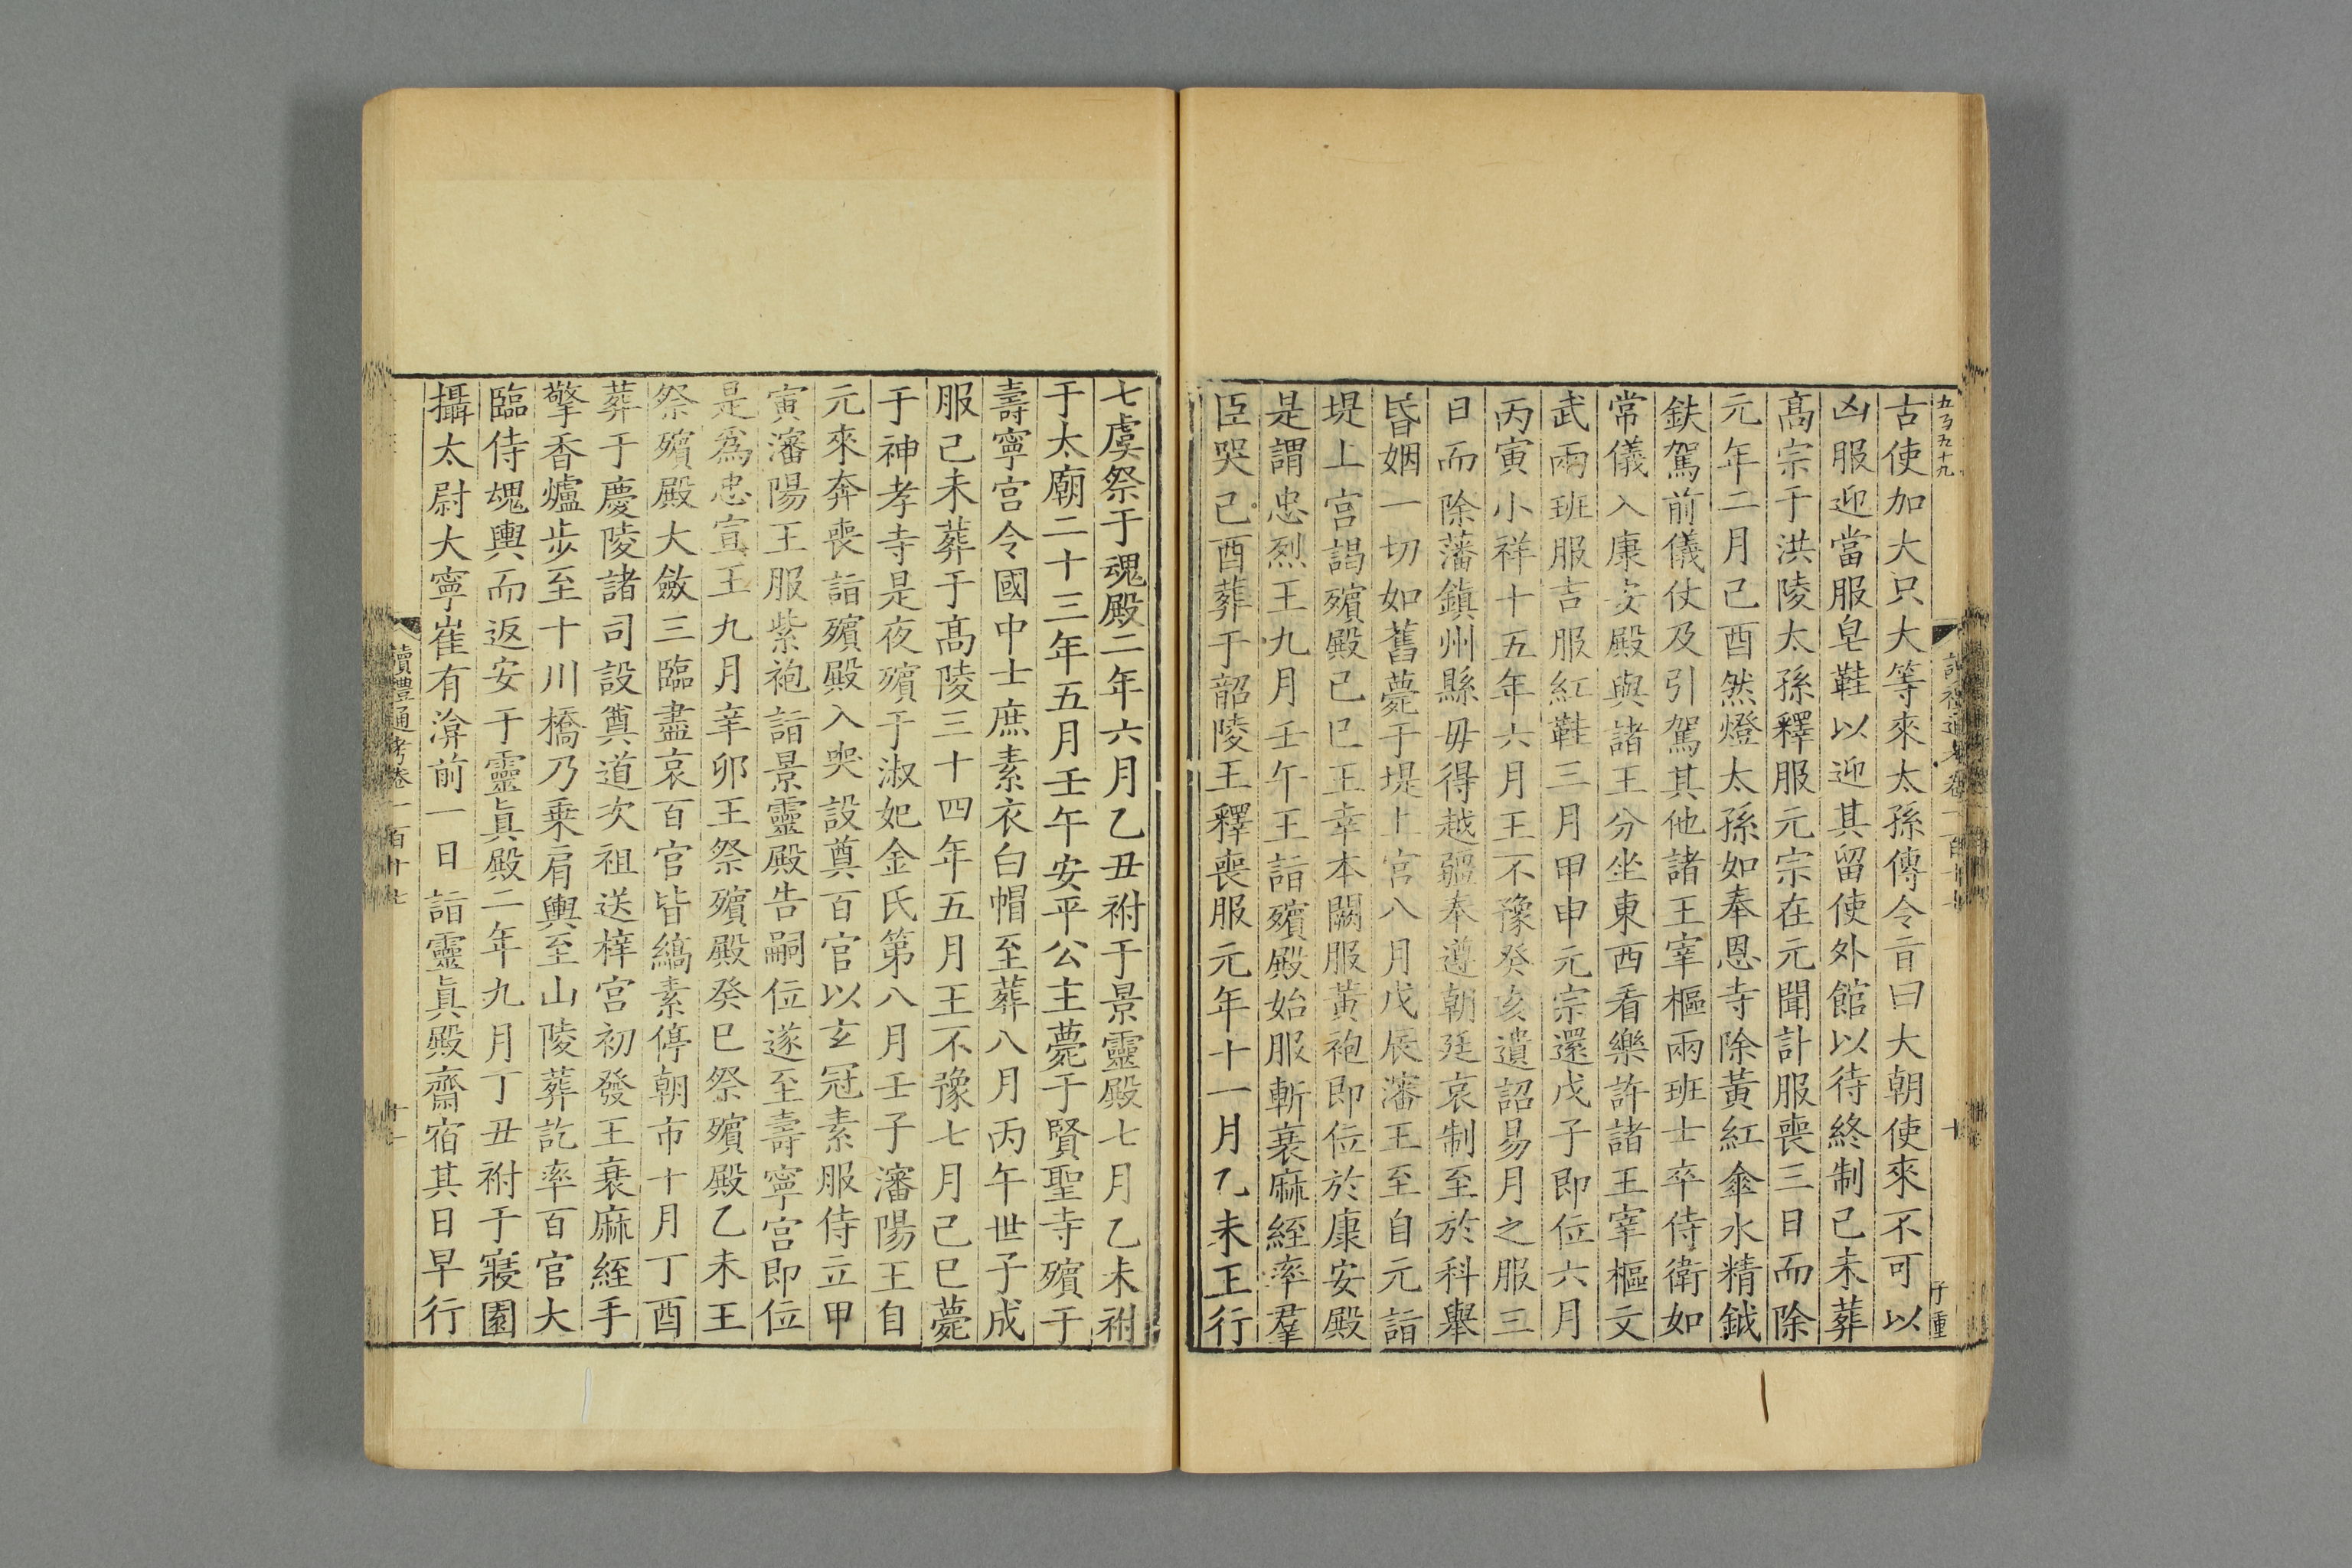 古使加大只大等來太孫傳令㫖曰大朝使來不可以
凶服迎當服皂鞋以迎其留使外館以待終制己未葬
髙宗于洪陵太孫釋服元宗在元聞訃服喪三日而除
元年二月己酉然燈太孫如奉恩寺除黃紅傘水精鉞
鈇駕前儀仗及引駕其他諸王宰樞兩班士卒侍衛如
常儀入康安殿與諸王分坐東西看樂許諸王宰樞文
武兩班服吉服紅鞋三月甲申元宗還戊子即位六月
丙寅小祥十五年六月王不豫癸亥遺詔易月之服三
日而除藩鎮州縣毋得越疆奉遵朝廷哀制至於科舉
昏姻一切如舊薨于堤上宮八月戊辰瀋王至自元詣
堤上宮謁殯殿己巳王幸本闕服黃袍即位於康安殿
是謂忠烈王九月壬午王詣殯殿始服斬衰麻絰率羣
臣哭己酉葬于韶陵王釋喪服元年十一月乙未王行
七虞祭于魂殿二年六月乙丑祔于景靈殿七月乙未祔
于太廟二十三年五月壬午安平公主薨于賢聖寺殯于
壽寧宮令國中士庶素衣白帽至葬八月丙午世子成
服己未葬于髙陵三十四年五月王不豫七月己巳薨
于神孝寺是夜殯于淑妃金氏第八月壬子瀋陽王自
元來奔喪詣殯殿入哭設奠百官以玄冠素服侍立甲
寅瀋陽王服紫袍詣景靈殿告嗣位遂至壽寧宮即位
是爲忠宣王九月辛卯王祭殯殿癸巳祭殯殿乙未王
祭殯殿大斂三臨盡哀百官皆縞素停朝市十月丁酉
葬于慶陵諸司設奠道次祖送梓宮初發王衰麻絰手
擎香爐步至十川橋乃乗肩輿至山陵葬訖率百官大
臨侍魂輿而返安于靈眞殿二年九月丁丑祔于寢園
攝太尉大寧崔有渰前一日詣靈眞殿齋宿其日早行
讀禮通考卷一百十七
十一